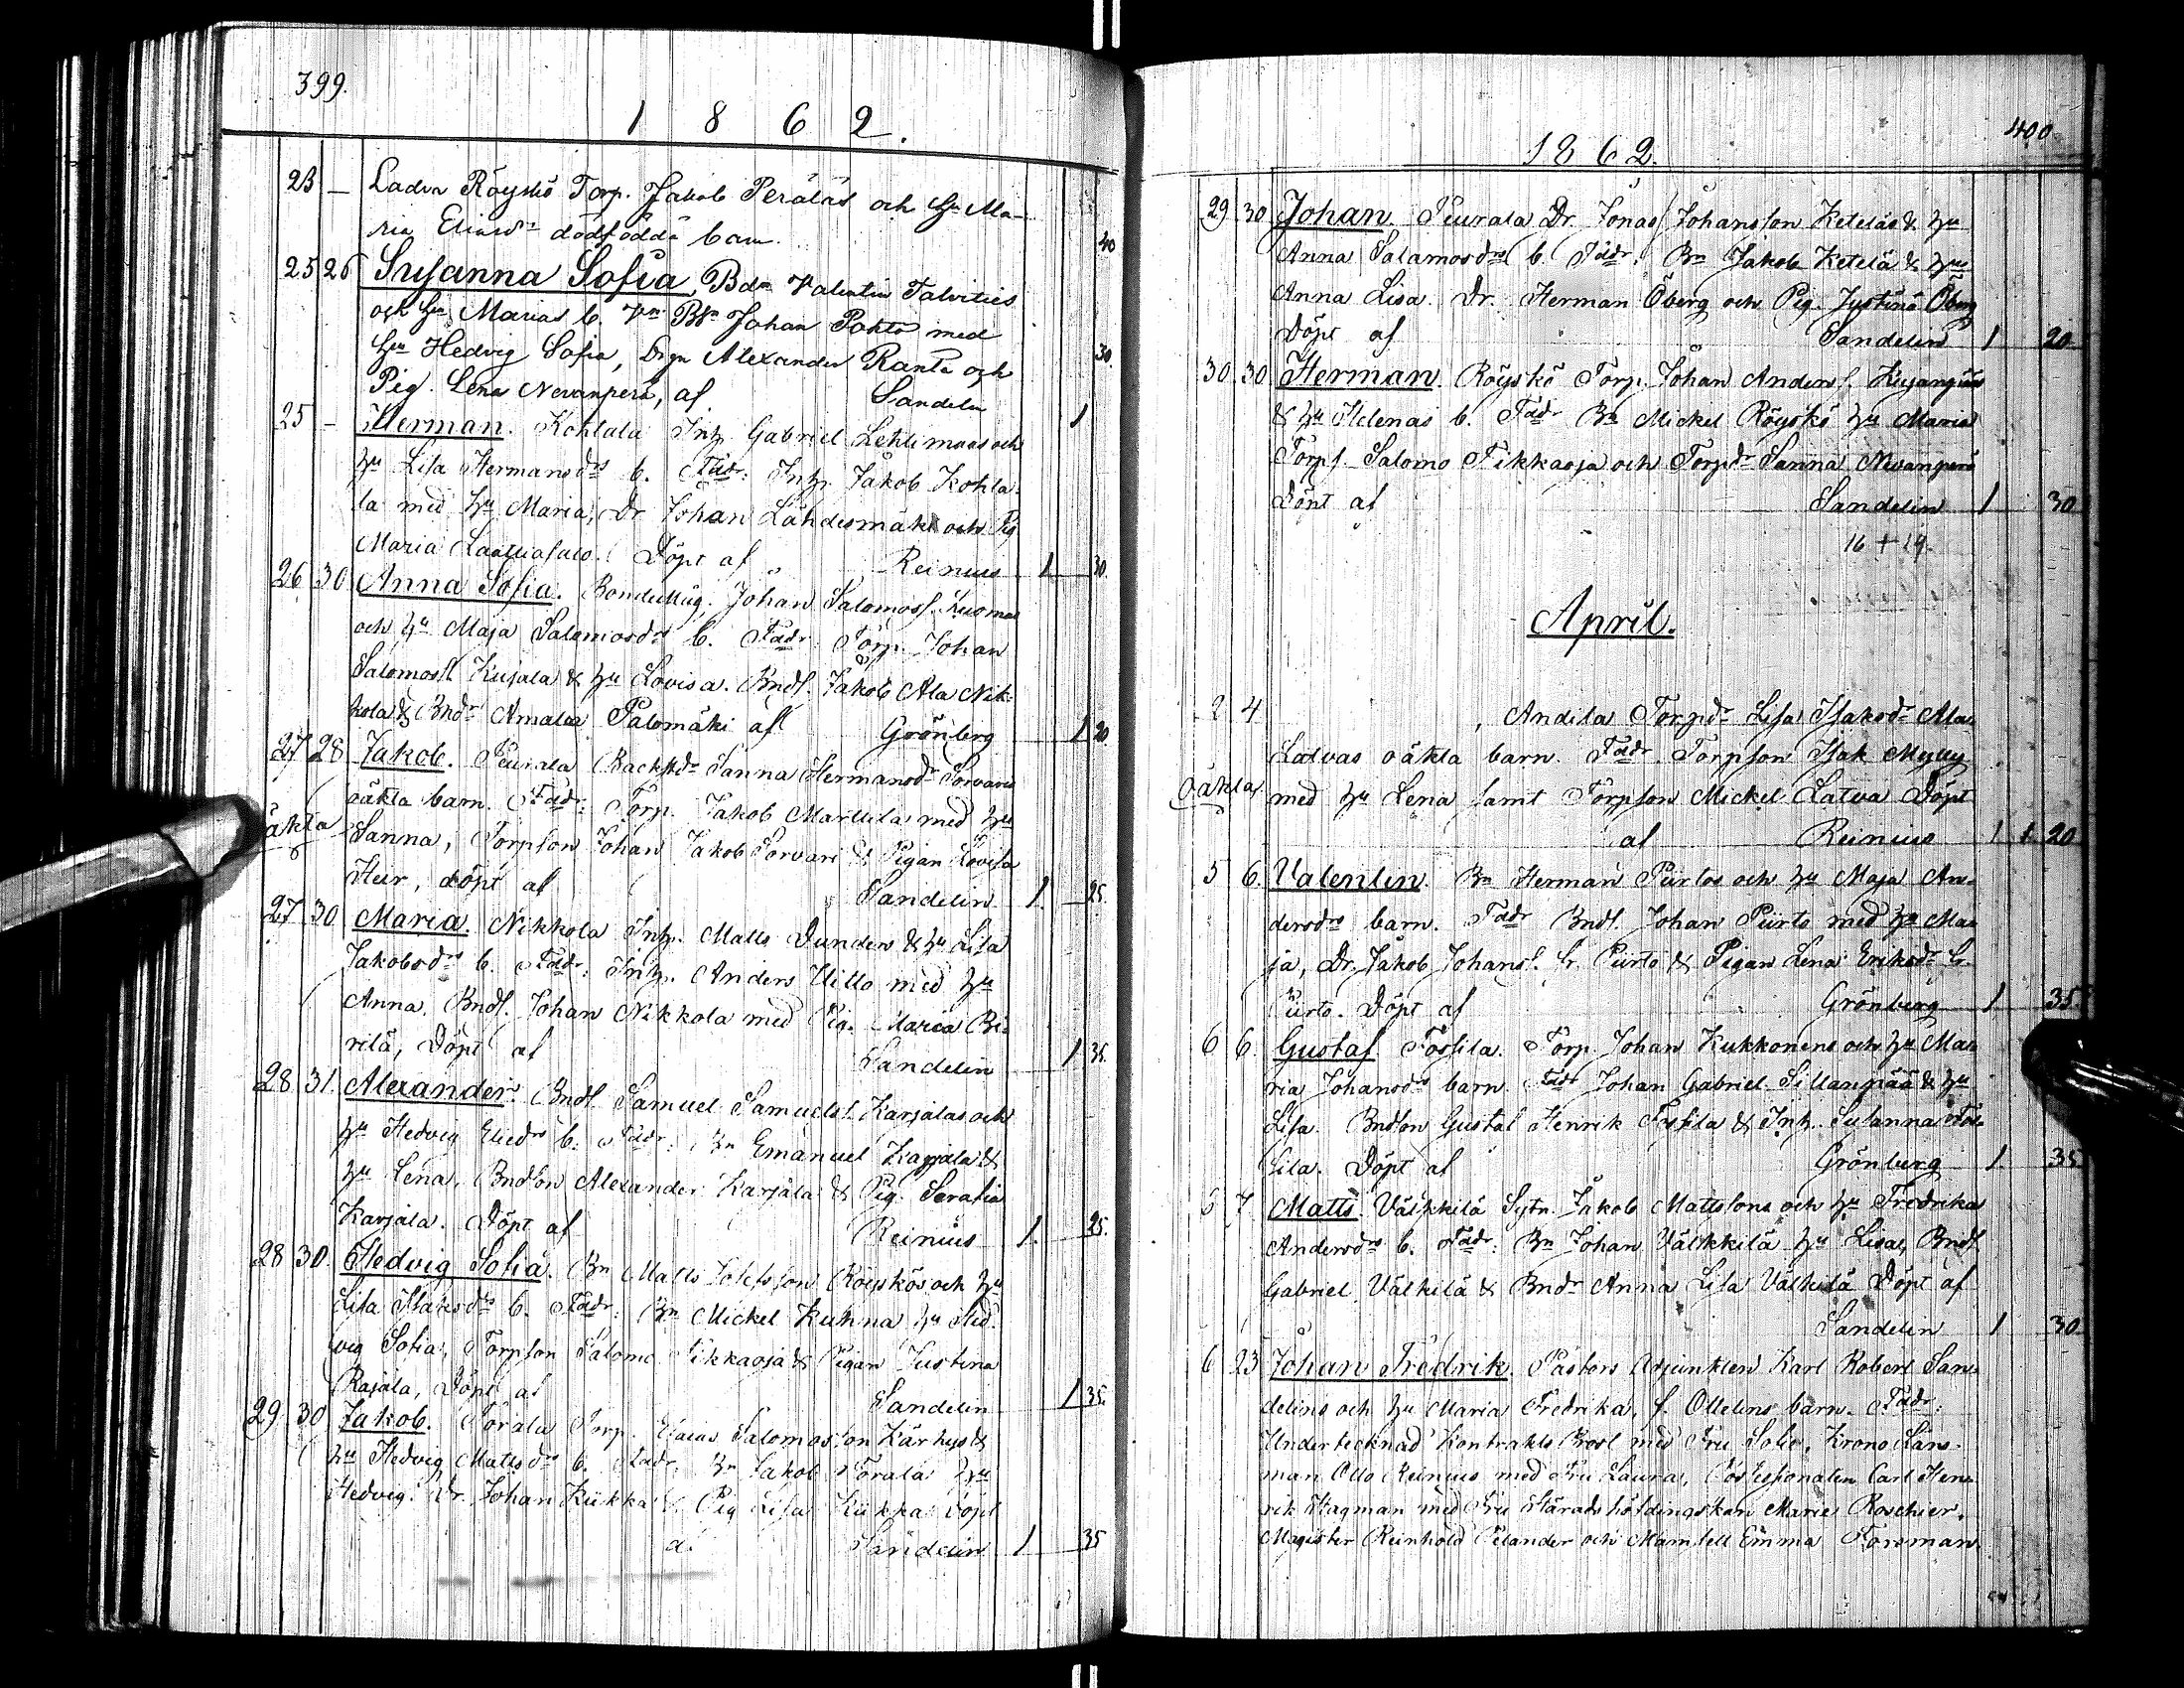 399.
1862.
23 — Ladva Röyskö Torp. Jakob Peräläs och hu Ma-
ria Eliasdr dödfödda barn. 40
25 26 Susanna Sofia, Bdn Valentin Talvities
och hu Marias b. Bdn Johan Pokto med
hu Hedvig Sofia, Drgn Alexander Ranta och 30.
Pig. Lena Nevanperä, af Sandelin 1
25 — Herman. Kohlala Inh. Gabriel Lehtimaas och
hu Lisa Hermansdrs b. Fadr: Inh. Jakob Kohla-
la med hu Maria, Dr Johan Lähdesmäki och Pig
Maria Döpt af Reinius 1 30.
26 30 Anna Sofia. Johan Salomoss. Kuomas
och hu Maja Salomosdrs b. Fadr: Torp. Johan
Salomoss Kujala & hu Lovisa. Bnds. Jakob Ala Nik-
kola & Bndr Amalia Palomäki af Grönberg 1 20.
27 28 Jakob. Peurala Backstdr Sanna Hermansdr Sorvaris
oäkta barn. Fadr: Torp. Jakob Marttila med hu
äkta Sanna, Torpson Johan Jakob Sorvari & Pigan Lovisa
Heir, döpt af Sandelin 1. 25.
27 30 Maria. Nikkola Inh. Matts Dunders & hu Lisa
Jakobsdrs b. Fadr: Inh. Anders Uitto med hu
Anna, Bnds. Johan Nikkola med Pig. Maria Pi-
rilä, Döpt af Sandelin 1 35.
28 31. Alexander. Bnds Samuel Samuelss. Karjalas och
hu Hedvig Eliedrs b. Fadr: Bn Emanuel Karjala &
hu Lena, Bndson Alexander Karjala & Pig. Serafia
Karjala. Döpt af Reinius 1. 25.
28 30. Hedvig Sofia. Bn Matts Röyskös och hu
Lisa Isaksdrs b. Fadr: Bn Mickel Kuhna hu Hed-
vig Sofia, Torpson Salomo Tikkaoja & Pigan Justina
Rajala, Döpt af Sandelin 1 35.
29 30 Jakob. Torala Torp. Esaias Salomosson Kärhys &
hu Hedvig Mattsdrs b. Fadr, Bn Jakob Torala hu
Hedvig. Dr. Johan Kiikka & Pig Lisa Kiikka Döpt
af Sandelin 1 35
400
1862.
29 30 Johan, Peurala Dr. Jonas Johansson Keteläs & hu
Anna Salamosdrs b. Fadr. Bn Jakob Ketelä & hu
Anna Lisa. Dr. Herman Öberg och Pig. Justina Öberg
Döpt af Sandelin 1 20
30 30 Herman. Röyskö Torp. Johan Anderss. Kujanpääs
& hu Helenas b. Fadr Bn Mickel Röyskö hu Maria
Torps. Salomo Tikkaoja och Torpdr Sanna Nevanperä
Döpt af Sandelin 1 30
16 + 19.
April.
2 4 , Andila Torpdr Lisa Isaksdr Ma-
Latvas oäkta barn. Fadr. Torpson Isak Mylly
Oäkta med hu Lena samt Torpson Mickel Latva Döpt
af Reinius 1 1 20
5 6. Valentin. Bn Herman Piirtos och hu Maja An-
dersdrs barn. Fadr Bnds. Johan Piirto med hu Ma-
ja, Dr. Jakob Johanss. Lr. Piirto & Pigan Lena Eriksdr Lr.
Piirto. Döpt af Grönberg 1. 35
6 6. Gustaf Tossila. Torp. Johan Kukkonens och hu Ma-
ria Johansdrs barn. Fadr Johan Gabriel Sillanpää & hu
Lisa. Bndson Gustaf Henrik Tossila & Inh. Susanna Tos-
sila. Döpt af Grönberg 1. 35
5 7 Matts. Välkkilä Sytn. Jakob Mattssons och hu Fredrika
Andersdrs b. Fadr: Bn Johan Välkkilä hu Lisa, Bnds.
Gabriel Välkilä & Bndr Anna Lisa Välkilä Döpt af
Sandelin 1 30
6 23 Johan Fredrik. Pastors Adjunkten Karl Robert San-
delins och hu Maria Fredrika, f. Ottelins barn. Fadr:
Undertecknad Kontrakts Prost med Fru Sofie, Krono Läns-
man Otto Reinius med Fru Laura, Possessionaten Carl Hen-
rik Hagman med Fru Häradshöfdingskan Marie Roschier,
Magister Reinhold Pelander och Mamsell Emma Forsman.